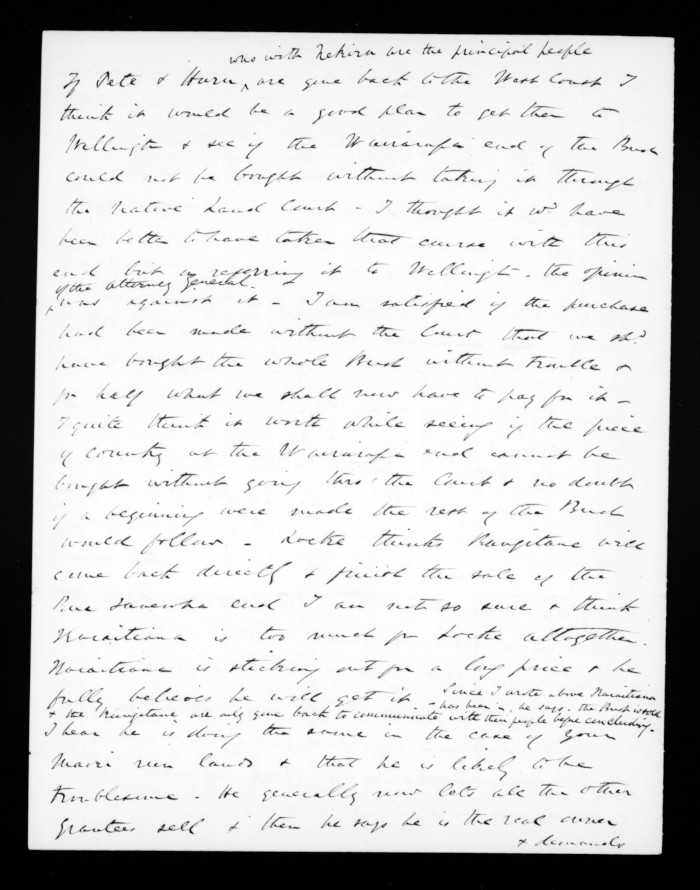 who with Nekira are the principal people
If Pete & Huru, are gone back to the West Coast I
think it would be a good plan to get them to
Wellingtn & see if the Wairarapa end of the Bush
could not be bought without taking it through
the Native Land Court - I thought it wd. have
been better to have taken that course with this
end but on referring it to Wellingtn - the opinion
of the Attorney General
was against it - I am satisfied if the purchase
had been made without the Court that we shd.
have bought the whole Bush without trouble &
for half what we shall now have to pay for it -
I quite think it worth while seeing if the piece
of country at the Wairarapa end cannot be
bought without going thro' the Court & no doubt
if a beginning were made the rest of the Bush
would follow - Locke thinks Rangitane will
come back directly & finish the sale of the
end I am not so sure & think
Karaitiana is too much for Locke altogether.
Karaitiana is sticking out for a long price & he
fully believes he will get it - Since I wrote above Karaitiana
has been in, he says the Bush is sold
& the Rangitane are only gone back to communicate with their people before concluding -
I hear he is doing the same in the case of your
Maori run lands & that he is likely to be
troublesome - He generally now lets all the other
Grantees sell & then he says he is the real owner
& demands